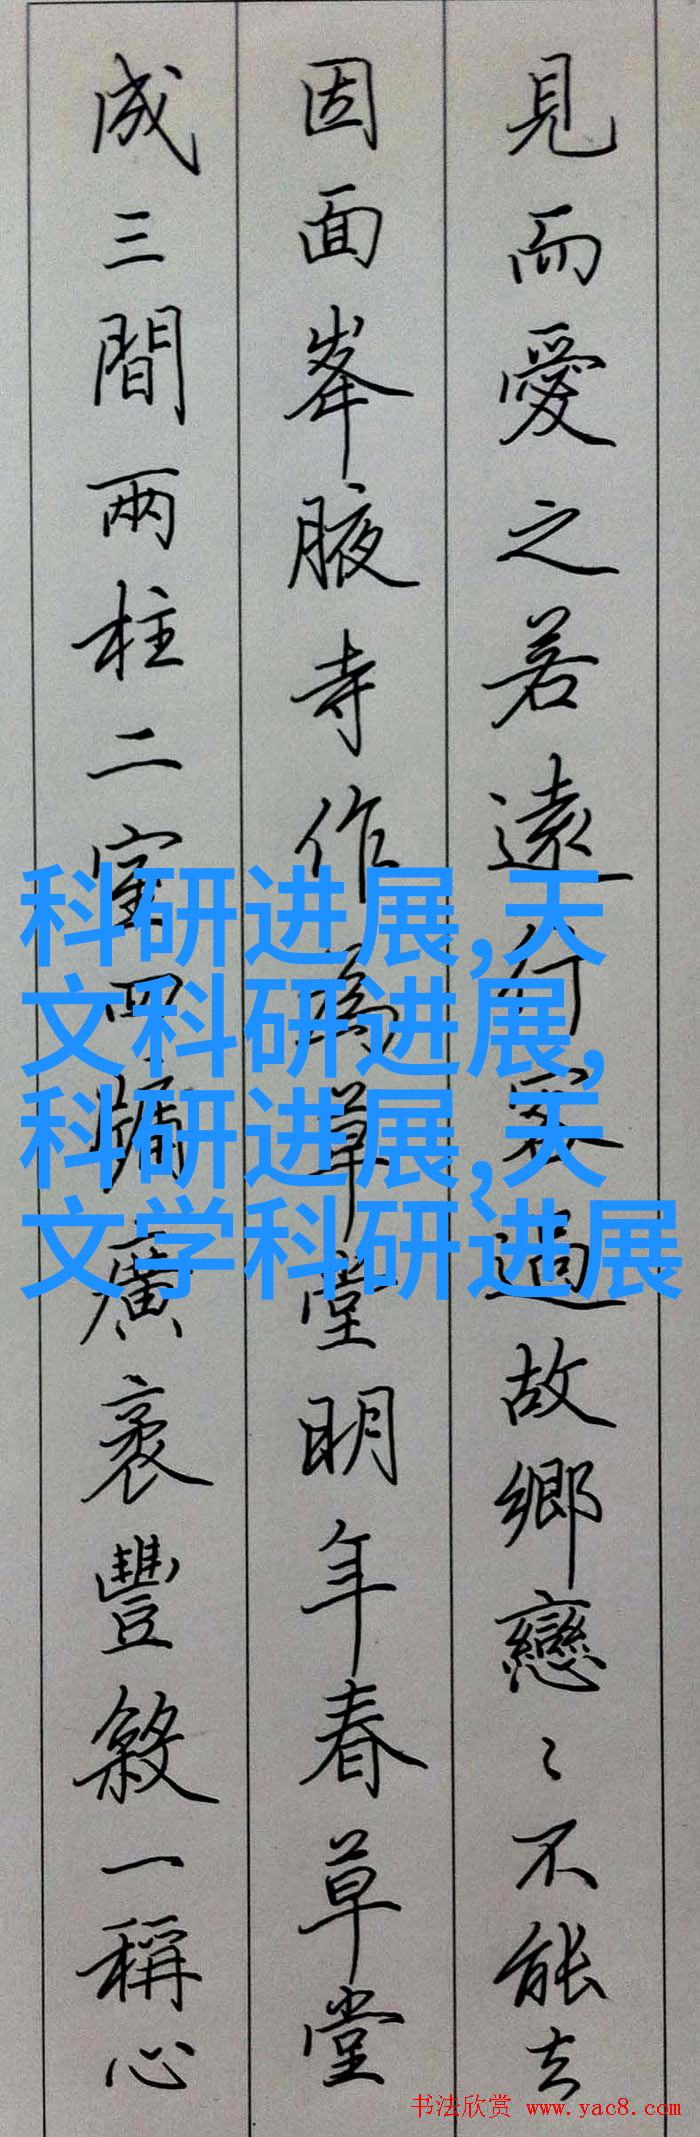 見而愛之若遠行客過故鄉戀〻不能去
因面峯腋寺作為草堂明年春草堂
成三間兩柱二室四牖廣袤豐殺一稱心
科研进展,天
文科研进展,
科研进展,天
文学科研进展
书法欣赏 www.yac8.com